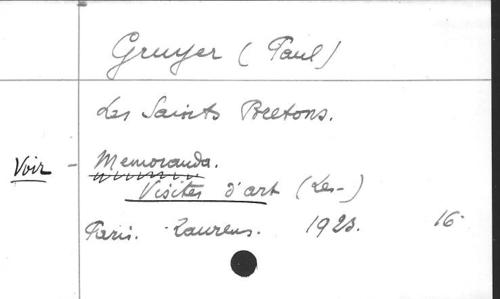 Gruyer (Paul)
Les Saints Bretons.
Voir - Memoranda.
Visites d'art (Les-)
Paris. Laurens. 1923. 16°